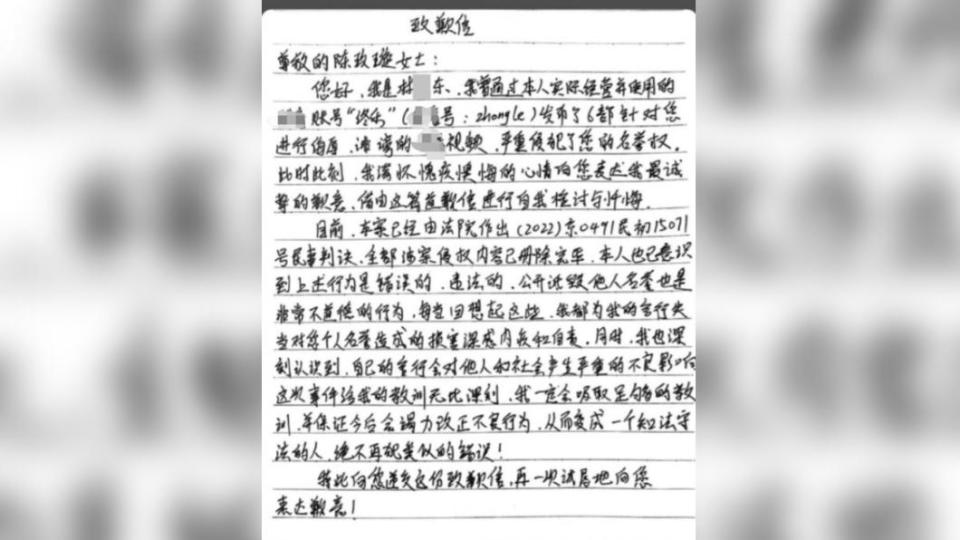 致歉信
尊敬的陈玫璇女士:
您好,我是林 东、我曾通过本人实际经营并使用的
账号“终乐”( 号:zhongle)发布了6部针对您
进行侮辱、诽谤的 视频,严重侵犯了您的名誉权。
此时此刻,我满怀愧疚懊悔的心情向您表达我最诚
挚的歉意,借由这篇道歉信进行自我检讨与忏悔。
目前,本案已经由法院作出(2022)京0491民初15071
号民事判决、全部涉案侵权内容已删除完毕,本人也已意识
到上述行为是错误的、违法的,公开诋毁他人名誉也是
非常不道德的行为,每当回想起这些,我都为我的言行失
当对您个人名誉造成的损害深感内疚和自责,同时,我也深
刻认识到,自己的言行会对他人和社会产生严重的不良影响
这次事件给我的教训无比深刻,我一定会吸取足够的教
训,并保证今后会竭力改正不良行为,从而变成一个知法守
法的人,绝不再犯类似的错误!
特此向您递交这份致歉信,再一次诚恳地向您
表达歉意!